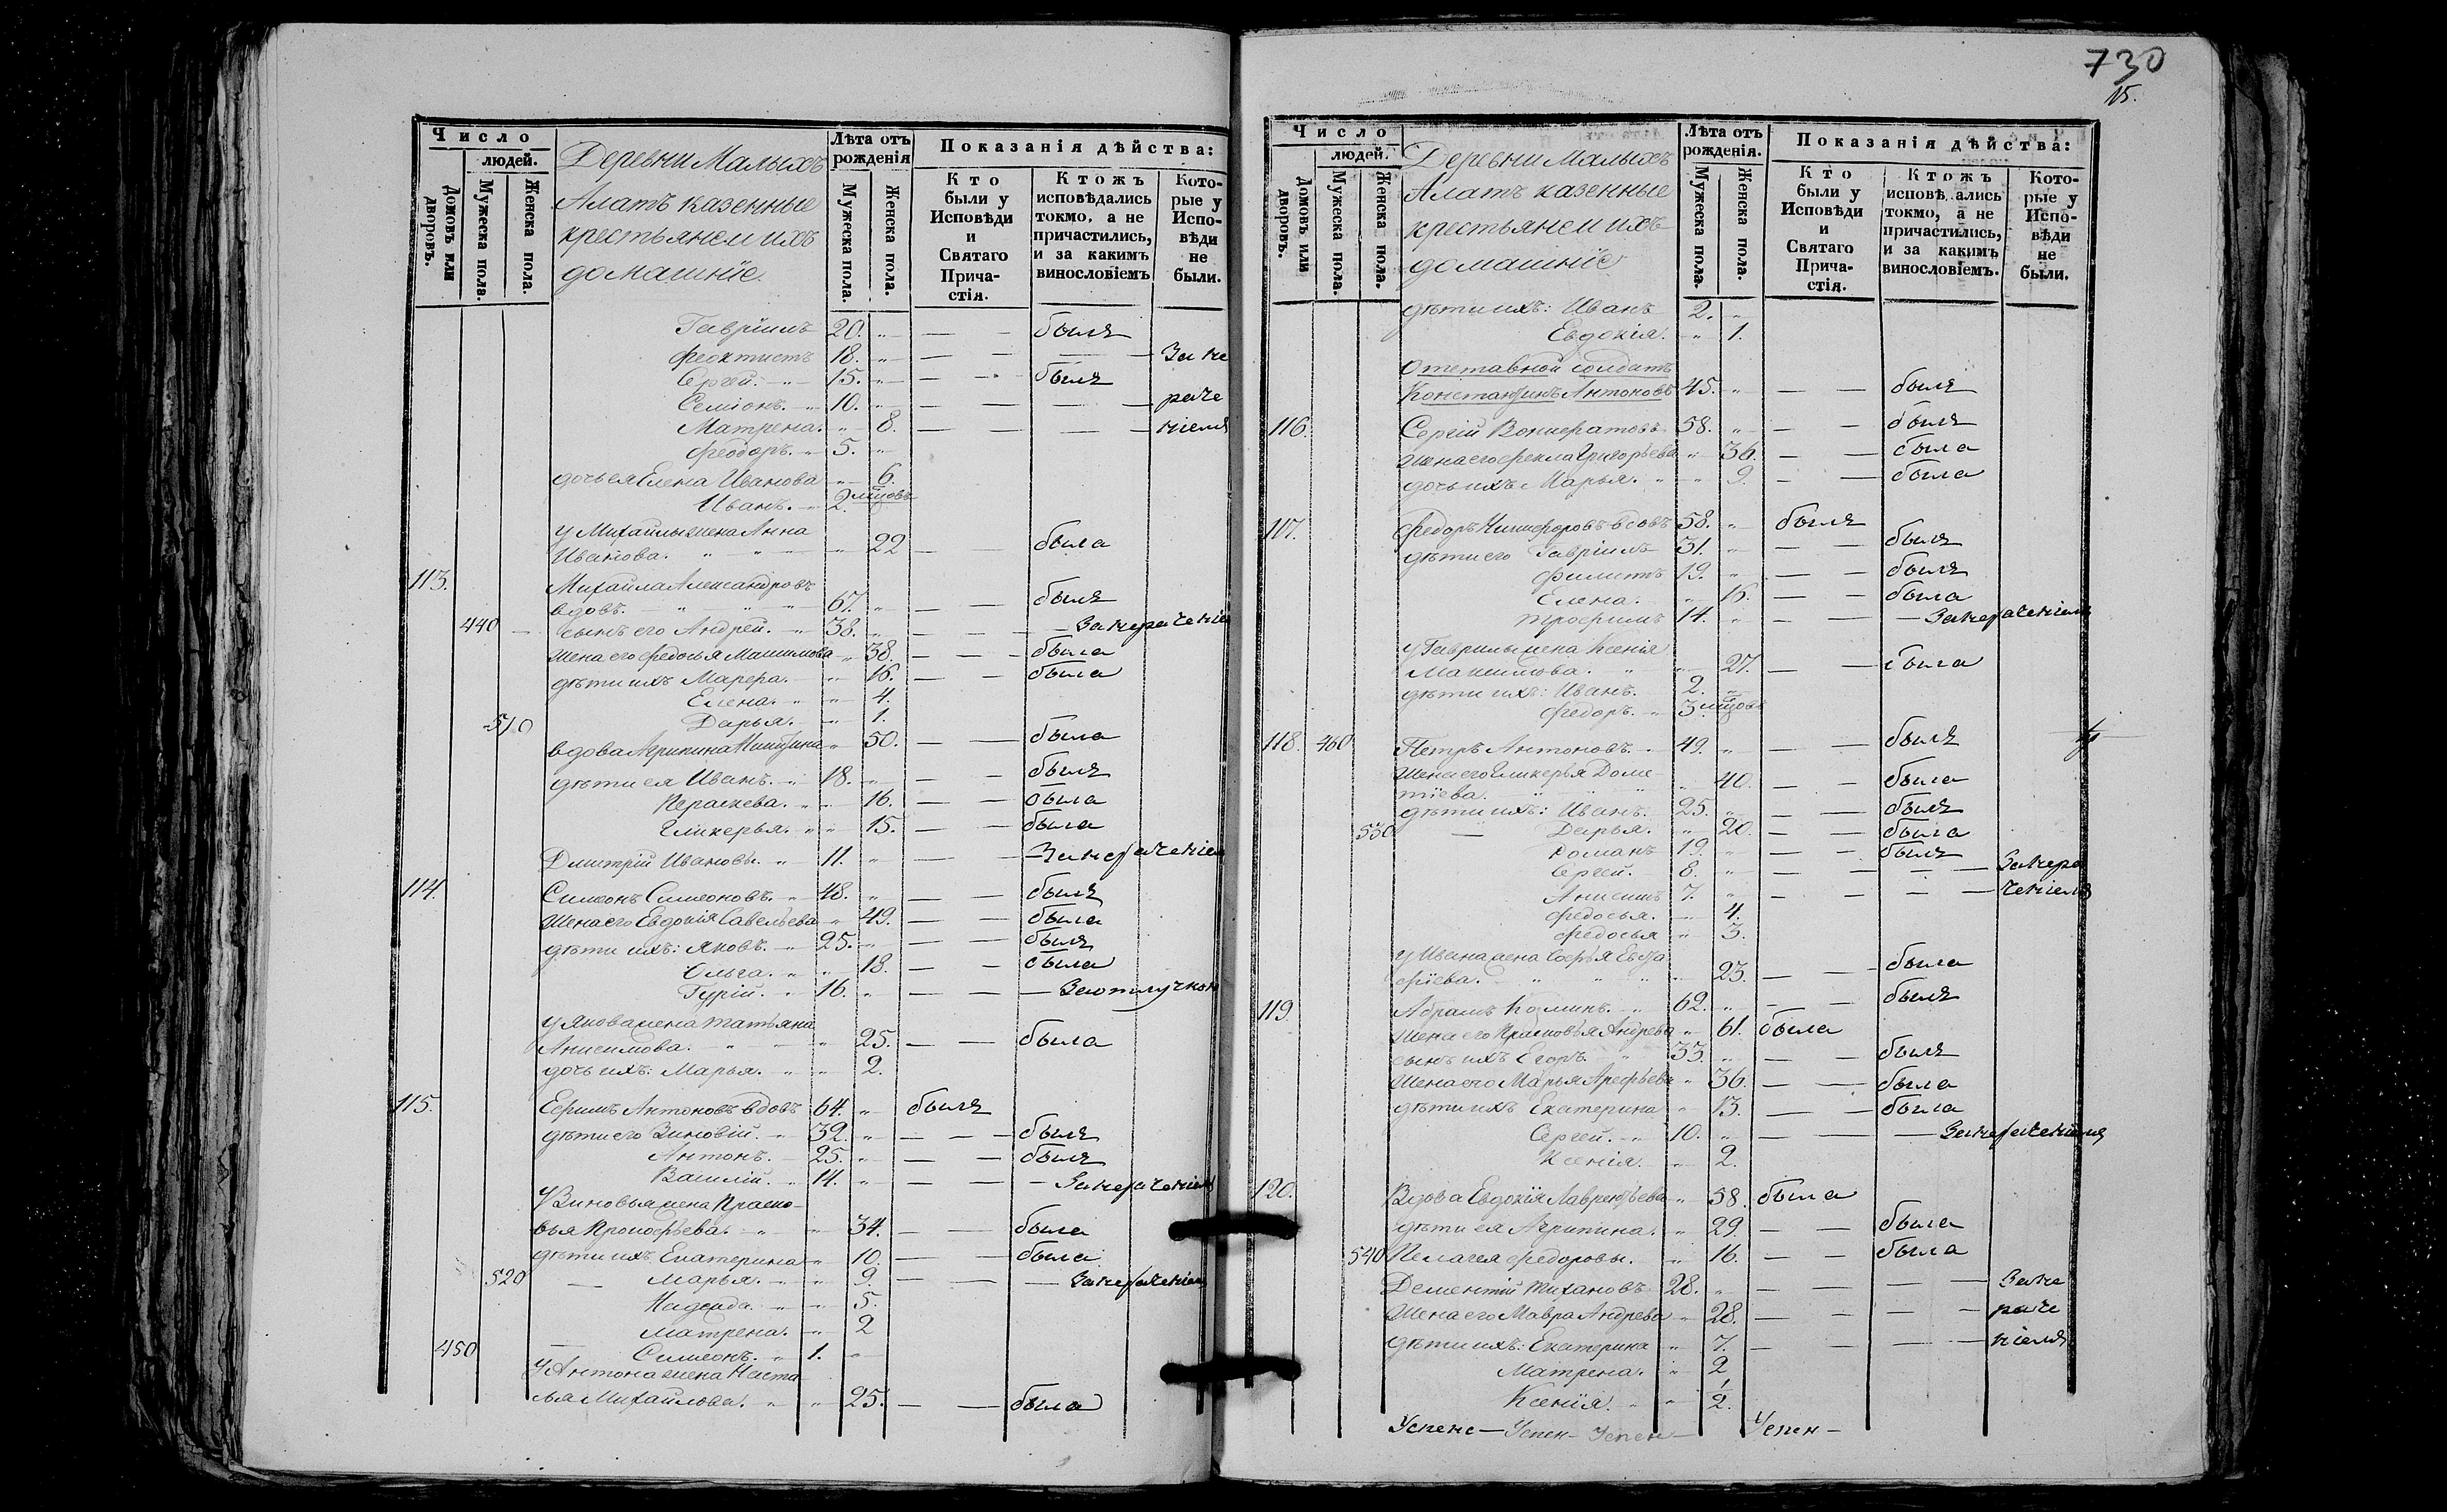 Число
людей.
Домовъ или дворовъ.
Мужеска пола.
Женска пола.
Деревни Малыхъ
Алатъ казенные
крестьяне и ихъ
домашніе.
Лѣта отъ рожденія
Мужеска пола.
Женска пола.
Показанія дѣйства:
Кто были у Исповѣди и Святаго Прича-стія.
Ктожъ исповѣдались токмо, а не причастились, и за какимъ винословіемъ
Кото-рые у Испо-вѣди не были.
Гавріилъ 20. „ — — былъ
Феоктистъ 18. „ — — — За не
Сергей. „ 15. „ — — былъ
Семіонъ. „ 10. „ — — — — раче
Матрена. „ 8. — — — — ніемъ
Феодоръ. „ 5. „
дочь ея Елена Иванова „ 6.
Иванъ. „ 2. мѣсцовъ
у Михайлы жена Анна
Иванова. „ „ 22 — была
113. Михайла Александровъ
вдовъ. „ „ 67. „ — — былъ
440 — сынъ его Андрей. „ 38. „ — — — За нераченіе
жена его Федосья Машимова „ 38. — — — была
дѣти ихъ Марфа. „ 16. — — была
Елена. „ „ 4.
510 Дарья. „ 1.
вдова Агрипина Никитина „ 50. — — была
дѣти ея Иванъ. „ 18. „ — — былъ
Параскева. „ „ 16. — — была
Гликерья. „ „ 15. — — была
Дмитрій Ивановъ. „ 11. „ — — — За нераченіем
114. Симеонъ Симеоновъ. „ 48. „ — — былъ
жена его Евдокія Савельева „ 49. — — была
дѣти ихъ: Яковъ. „ 25. „ — — былъ
Ольга. „ „ 18. — — была
Гурій. „ 16. „ — — — За отлучкою
у Якова жена Татьяна
Анисимова. „ „ 25. — — была
дочь ихъ: Марья. „ „ 2.
115. Ефимъ Антоновъ вдовъ 64. „ былъ
дѣти его Зиновій. „ 32. „ — — — былъ
Антонъ. — 25. „ — — былъ
Василій. „ 14. „ — — — За нераченіемъ
у Зиновья жена Праско-
вья Прокофьева. „ „ 34. — — была
дѣти ихъ Екатерина „ 10. — — была
520 — Марья. „ „ 9. — — — За нераченіем
Надежда. „ „ 5.
Матрена. „ 2
450 — Симеонъ. „ 1. „
у Антона жена Наста
лья Михайлова. „ „ 25. — — была
730
15.
Число
людей.
Домовъ или дворовъ.
Мужеска пола.
Женска пола.
Деревни Малыхъ
Алатъ казенные
крестьяне и ихъ
домашніе
Лѣта отъ рожденія.
Мужеска пола.
Женска пола.
Показанія дѣйства:
Кто были у Исповѣди и Святаго Прича-стія.
Ктожъ исповѣ ались токмо, а не причастились, и за какимъ винословіемъ.
Кото-рые у Испо-вѣди не были.
дѣти ихъ: Иванъ 2. „
Евдокія. „ 1.
Отставной солдатъ
Константинъ Антоновъ 45. „ — — былъ
116. Сергій 58. „ — — былъ
жена его Фекла Григорьева „ 36. — — была
дочь ихъ Марья. „ „ 9. — — была
117. Федоръ Никифоровъ вдовъ 58. „ былъ
дѣти его Гавріилъ 31. „ — — былъ
Филиппъ 19. „ — — былъ
Елена. „ 16. — — была
Трофимъ 14. „ — — — За нераченіемъ
у Гаврилы жена Ксенія
Максимова. „ „ 27. — — была
дѣти ихъ: Иванъ. 2. „
Федоръ. „ 3. мѣсцовъ
118. 460 Петръ Антоновъ. „ 49. „ — — былъ
жена его Гликерья Доме-
тіева. „ 40. — — была
дѣти ихъ: Иванъ. 25. „ — — былъ
530 — Дарья. „ 20. — — была
Романъ 19. „ — — былъ
Сергей. 8. „ — — — — За нера
Анисимъ 7. „ — — — — ченіемъ
Федосья. „ 4.
Федосья „ 3.
у Ивана жена Софья Евста
фіева. „ „ „ 23. — — была
119. Абрамъ Козминъ. „ 62. „ — — былъ
жена его Прасковья Андрева „ 61. была
сынъ ихъ Егоръ. „ 33. „ — — былъ
жена его Марья Арефьева „ 36. — — была
дѣти ихъ Екатерина „ 13. — — была
Сергей. „ 10. „ — — — За нераченіемъ
Ксенія. „ 2.
120. Вдова Евдокія Лаврентьева „ 58. была
дѣти ея Агрипина. „ 29. — — была
540 Пелагея Федоровы. „ 16. — — была
Дементій Тихановъ 28. „ — — За не
жена его Мавра Андрева „ 28. — — — раче
дѣти ихъ: Екатерина „ 7. — — — ніемъ
Матрена. „ 2
Ксенія. „ „ 1/2.
Успенс — Успен — Успен — Успен —